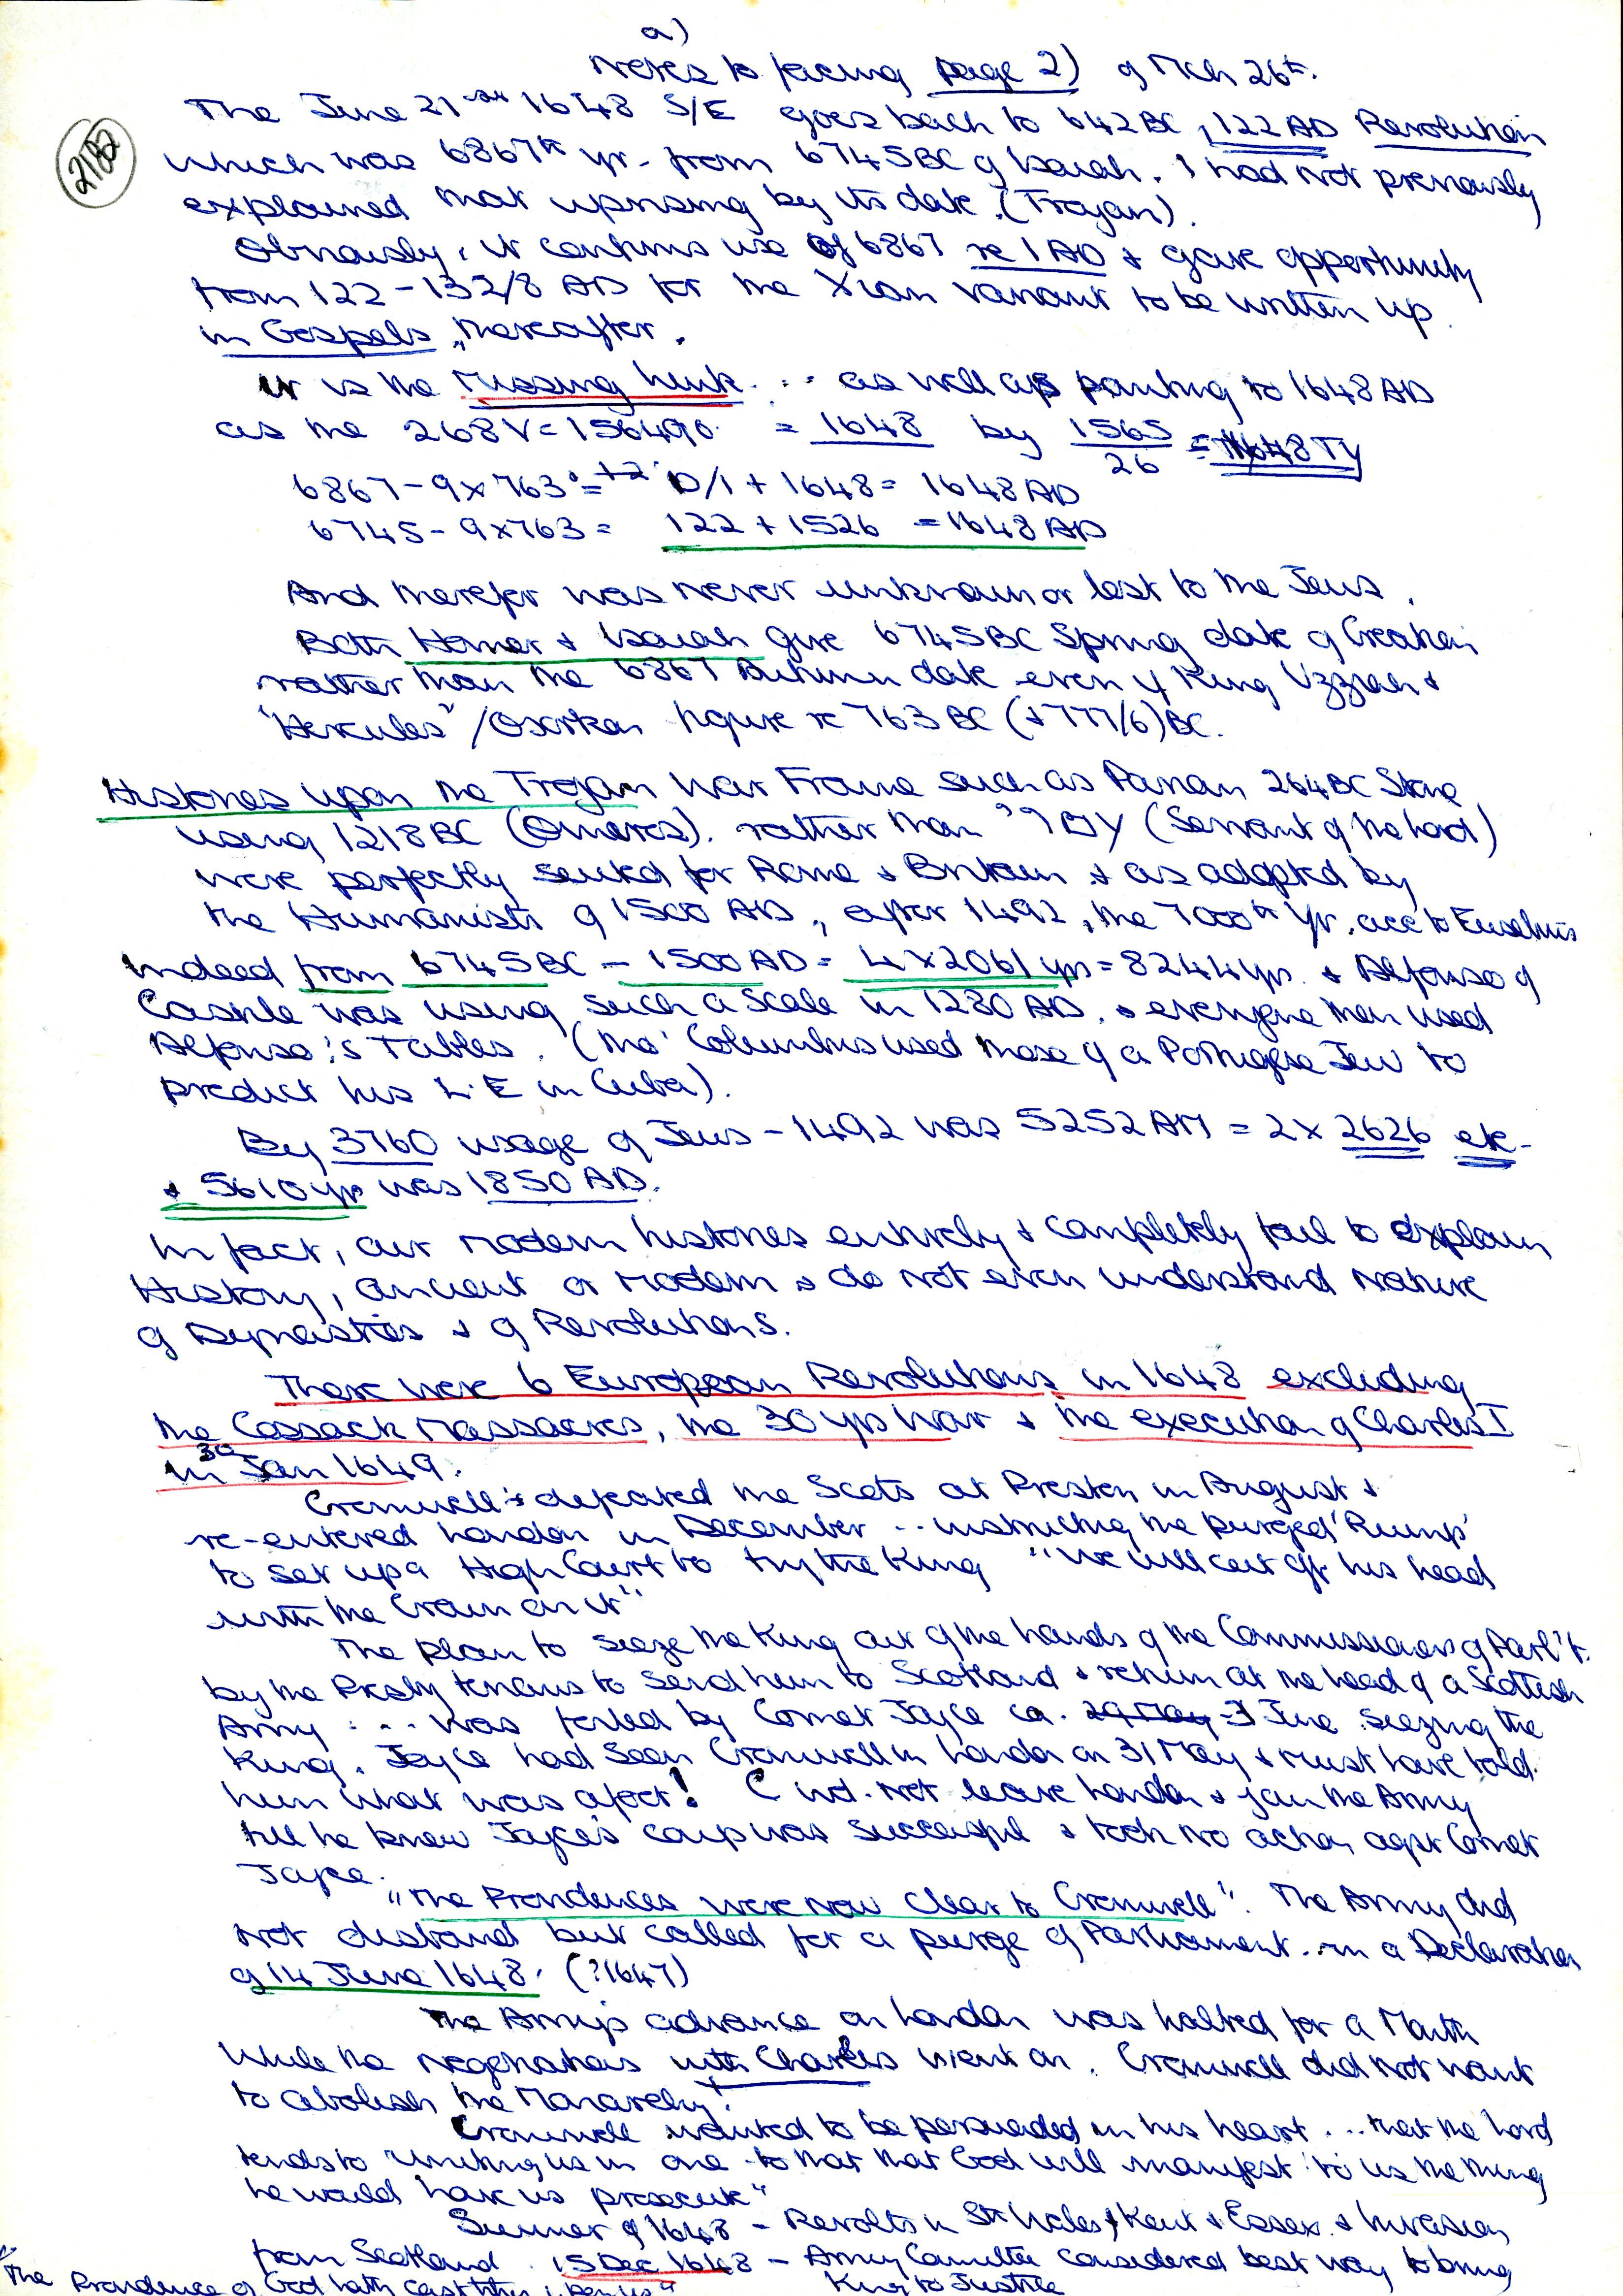 a)
Notes to facing page 2) of Mch 26th.
2182
The June 21st 1648 S/E goes back to 642BC, 122 AD Revolution
which was 6867th yr. from 6745BC of Isaiah. I had not previously
explained that uprising by its date. (Trojan).
Obviously, it confirms use of 6867 re 1 AD & gave opportunity
from 122-132/8 AD for the Xian variant to be written up
in Gospels, thereafter.
It is the Missing Link... as well as pointing to 1648 AD
as the 268V = 156490. = 1648 by 1565/26 = 1648 TY
6867 - 9x763 = 0/1 + 1648 = 1648 AD
6745 - 9x763 = 122 + 1526 = 1648 AD
And therefor was never unknown or lost to the Jews.
Both Homer & Isaiah give 6745BC Spring date of Creation
rather than the 6867 Autumn date even if King Uzziah &
"Hercules"/Osorkon figure re 763 BC (& 777/6) BC.
Histories upon the Trojan War Frame such as Parian 264BC Stone
using 1218BC (Omeros). rather than (Servant of the Lord)
were perfectly suited for Rome & Britain & as adopted by
the Humanists of 1500 AD, after 1492, the 7000th Yr. acc to Eusebius
Indeed from 6745BC - 1500 AD = 4x2061 yrs = 8244 yrs. & Alfonso of
Castile was using such a scale in 1280 AD. & everyone then used
Alfonso's Tables. (tho' Columbus used those of a Portugese Jew to
predict his L.E in Cuba).
By 3760 usage of Jews - 1492 was 5252 AM = 2 x 2626 etc -
& 5610 yr was 1850 AD.
In fact, our modern histories entirely & completely fail to explain
History, ancient or modern & do not even understand nature
of Dynasties & of Revolutions.
There were 6 European Revolutions in 1648 excluding
the Cossack Massacres, the 30 yrs War & the execution of Charles I
in 30 Jan 1649.
Cromwell defeated the Scots at Preston in August &
re-entered London in December .. instructing the purged 'Rump'
to set up a High Court to try the King "We will cut off his head
with the Crown on it"
The plan to seize the King out of the hands of the Commissioners of Parl't.
by the Presbyterians to send him to Scotland & return at the head of a Scottish
Army ... was foiled by Cornet Joyce ca. 29 May - 3 June seizing the
King. Joyce had seen Cromwell in London on 31 May & must have told
him what was afoot! C wd. not leave London & join the Army
till he knew Joyce's coup was successful & took no action agst Cornet
Joyce.
"The Providences were now clear to Cromwell". The Army did
not disband but called for a purge of Parliament.. in a Declaration
of 14 June 1648. (?1647)
The Army's advance on London was halted for a Month
while the negotiations with Charles went on. Cromwell did not want
to abolish the Monarchy.
Cromwell wanted to be persuaded in his heart ... that the Lord
tends to "uniting us in one - to that that God will manifest to us the thing
he would have us prosecute"
Summer of 1648 - Revolts in Sth Wales, Kent & Essex. & Invasion
from Scotland. 15 Dec 1648 - Army Committee considered best way to bring
King to Justice
The Providence of God hath cast this upon us"